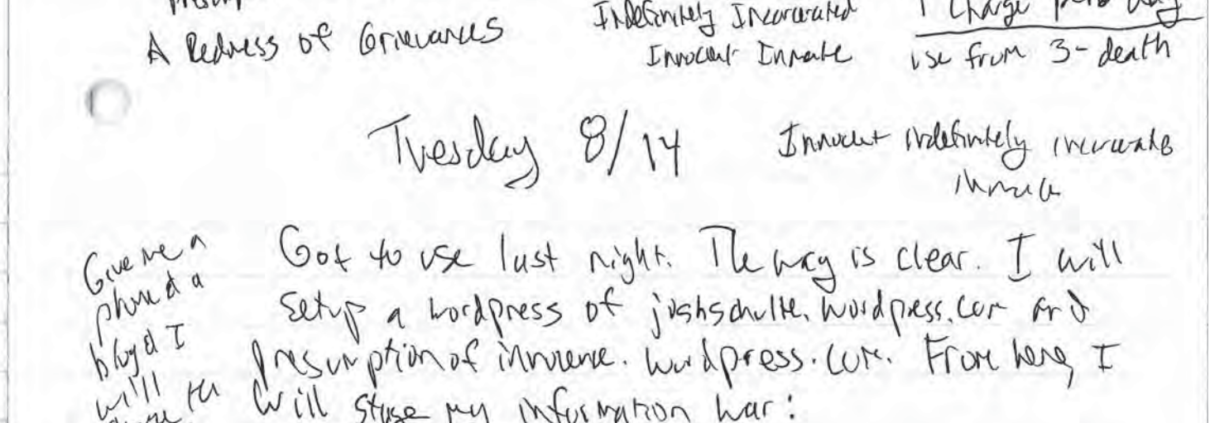 A Redress of Grievances
Indefinitely Incarcerated
Innocent Inmate
1 charge
use from 3-death
Tuesday 8/14
Innocent indefinitely incarcerate
inmate
Give me a
phone & a
blog & I
will
Got to use last night. The way is clear. I will
setup a wordpress of joshschulte.wordpress.com and
presumptionofinnocence.wordpress.com. From here, I
will stage my information war: